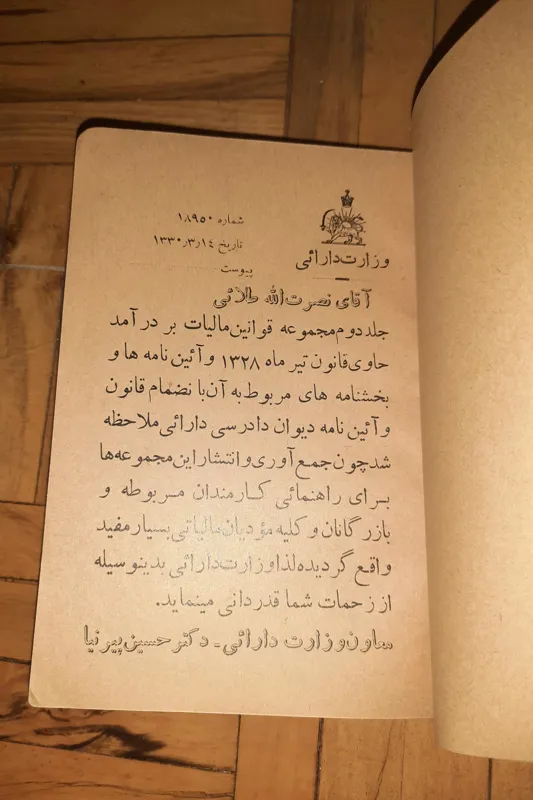 شماره ۱۸۹۵۰
تاریخ ۱۳۳۰٫۳٫۱٤
پیوست
وزارت دارائی
آقای نصرت‌الله طلائی
جلد دوم مجموعه قوانین مالیات بر درآمد
حاوی قانون تیر ماه ۱۳۲۸ و آئین نامه ها و
بخشنامه های مربوط به آن با نضمام قانون
و آئین نامه دیوان دادرسی دارائی ملاحظه
شد چون جمع آوری و انتشار این مجموعه‌ها
برای راهنمائی کارمندان مربوطه و
بازرگانان و کلیه مؤدیان مالیاتی بسیار مفید
واقع گردیده لذا وزارت دارائی بدینوسیله
از زحمات شما قدردانی مینماید.
معاون وزارت دارائی - دکتر حسین پیرنیا